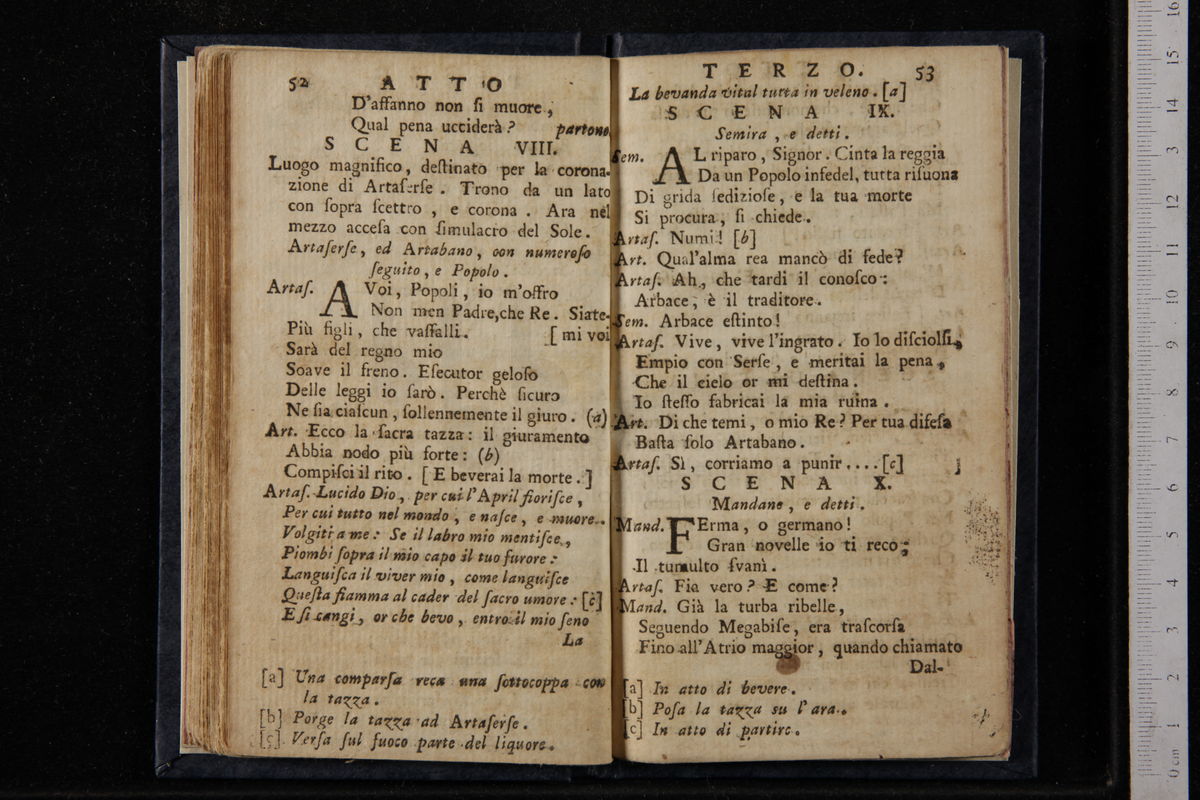 52 ATTO
D'affanno non ſi muore,
Qual pena ucciderà? partono
SCENA VIII.
Luogo magnifico, deſtinato per la corona-
zione di Artaſerſe. Trono da un lato
con ſopra ſcettro, e corona. Ara nel
mezzo acceſa con ſimulacro del Sole.
Artaſerſe, ed Artabano, con numeroſo
ſeguito, e Popolo.
Artaſ. A Voi, Popoli, io m'offro
Non men Padre, che Re. Siate-
Più figli, che vaſſalli. [mi voi
Sarà del regno mio
Soave il freno. Eſecutor geloſo
Delle leggi io ſarò. Perchè ſicuro
Ne ſia ciaſcun, ſollennemente il giuro. (a)
Art. Ecco la ſacra tazza: il giuramento
Abbia nodo più forte: (b)
Compiſci il rito. [E beverai la morte.]
Artaſ. Lucido Dio, per cui l'April fioriſce,
Per cui tutto nel mondo, e naſce, e muore.
Volgiti a me: Se il labro mio mentiſce,
Piombi ſopra il mio capo il tuo furore:
Languiſca il viver mio, come languiſce
Queſta fiamma al cader del ſacro umore: [c]
E ſi cangi, or che bevo, entro il mio ſeno
La
[a] Una comparſa reca una ſottocoppa con
la tazza.
[b] Porge la tazza ad Artaſerſe.
[c] Verſa ſul fuoco parte del liquore.
TERZO. 53
La bevanda vital tutta in veleno. [a]
SCENA IX.
Semira, e detti.
Sem. AL riparo, Signor. Cinta la reggia
Da un Popolo infedel, tutta riſuona
Di grida ſedizioſe, e la tua morte
Si procura, ſi chiede.
Artaſ. Numi! [b]
Art. Qual'alma rea mancò di fede?
Artaſ. Ah, che tardi il conoſco:
Arbace, è il traditore.
Sem. Arbace eſtinto!
Artaſ. Vive, vive l'ingrato. Io lo diſciolſi,
Empio con Serſe, e meritai la pena,
Che il cielo or mi deſtina.
Io ſteſſo fabricai la mia ruina.
Art. Di che temi, o mio Re? Per tua difeſa
Baſta ſolo Artabano.
Artaſ. Sì, corriamo a punir....[c]
SCENA X.
Mandane, e detti.
Mand. FErma, o germano!
Gran novelle io ti reco;
Il tumulto ſvanì.
Artaſ. Fia vero? E come?
Mand. Già la turba ribelle,
Seguendo Megabiſe, era traſcorſa
Fino all'Atrio maggior, quando chiamato
Dal-
[a] In atto di bevere.
[b] Poſa la tazza su l'ara.
[c] In atto di partire.
0 cm 1 2 3 4 5 6 7 8 9 10 11 12 3 14 15 16